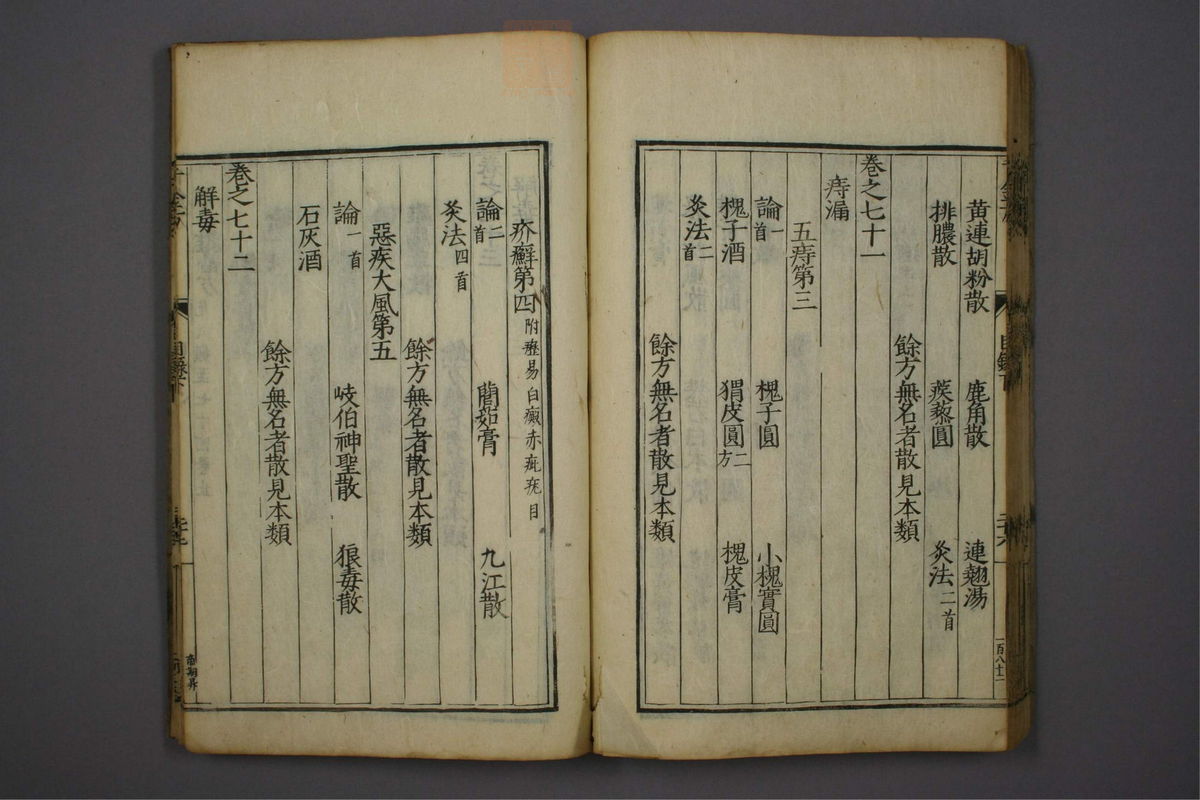 黃連胡粉散 鹿角散 連翹湯
排膿散 蒺藜圓 灸法二首
餘方無名者散見本類
卷之七十一
痔漏
五痔第三
論一首 槐子圓 小槐實圓
槐子酒 猬皮圓二方 槐皮膏
灸法二首
餘方無名者散見本類
疥癬第四附癧易白癜赤疵疣目
論二首 䕡茹膏 九江散
灸法四首
餘方無名者散見本類
惡疾大風第五
論一首 岐伯神聖散 狼毒散
石灰酒
餘方無名者散見本類
卷之七十二
解毒